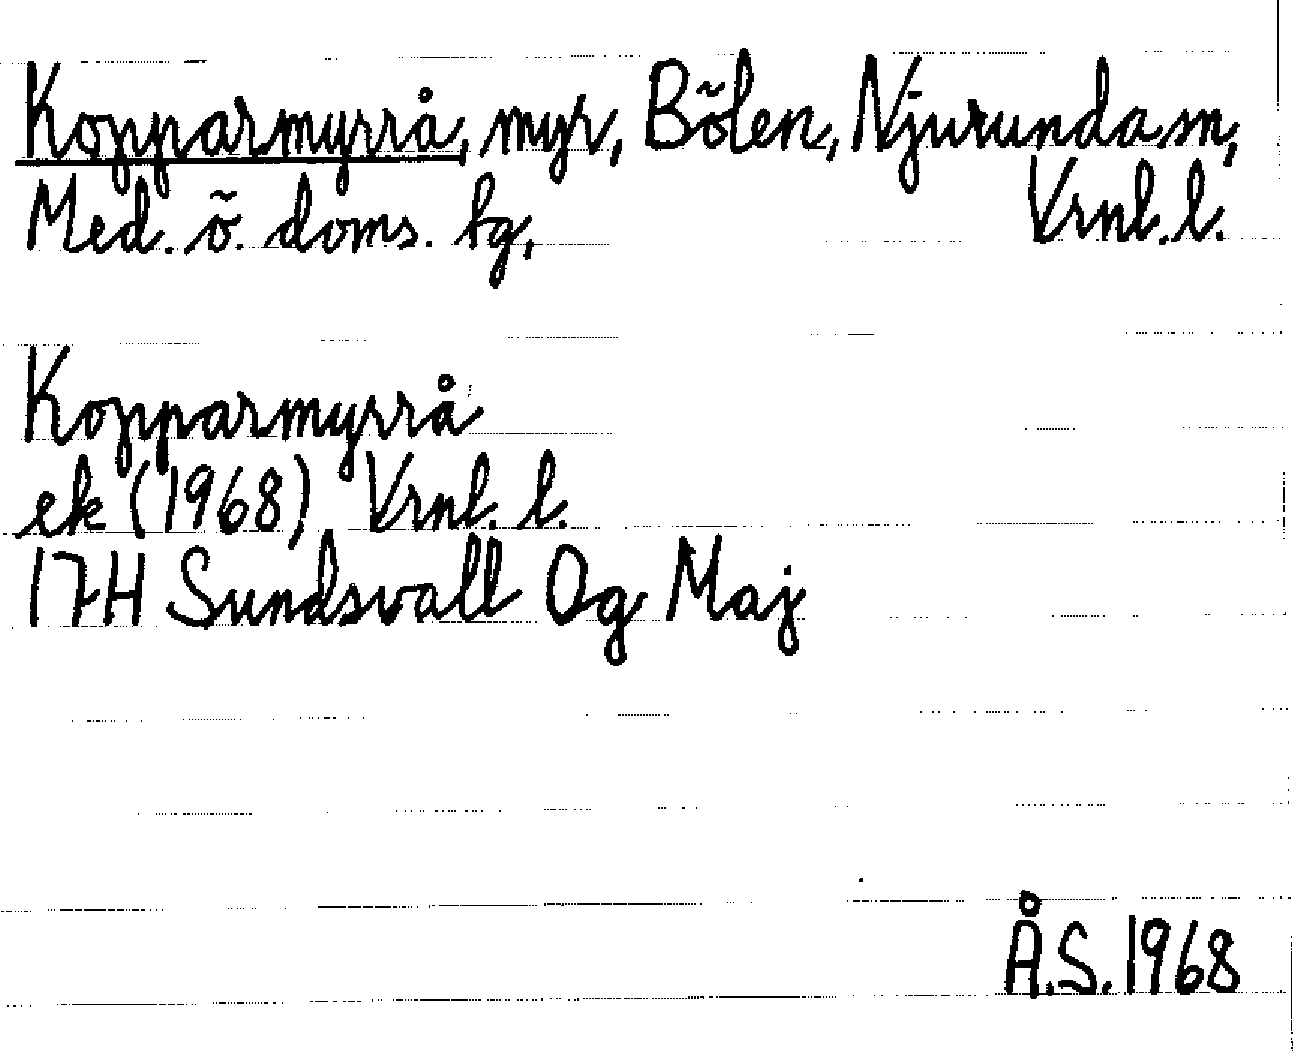 Kopparmyrrå, myr, Bölen, Njurunda sn,
Med. ö. doms. tg, Vrnl. l.
Kopparmyrrå
ek (1968) Vrnl. l.
17H Sundsvall Og Maj
Å.S. 1968